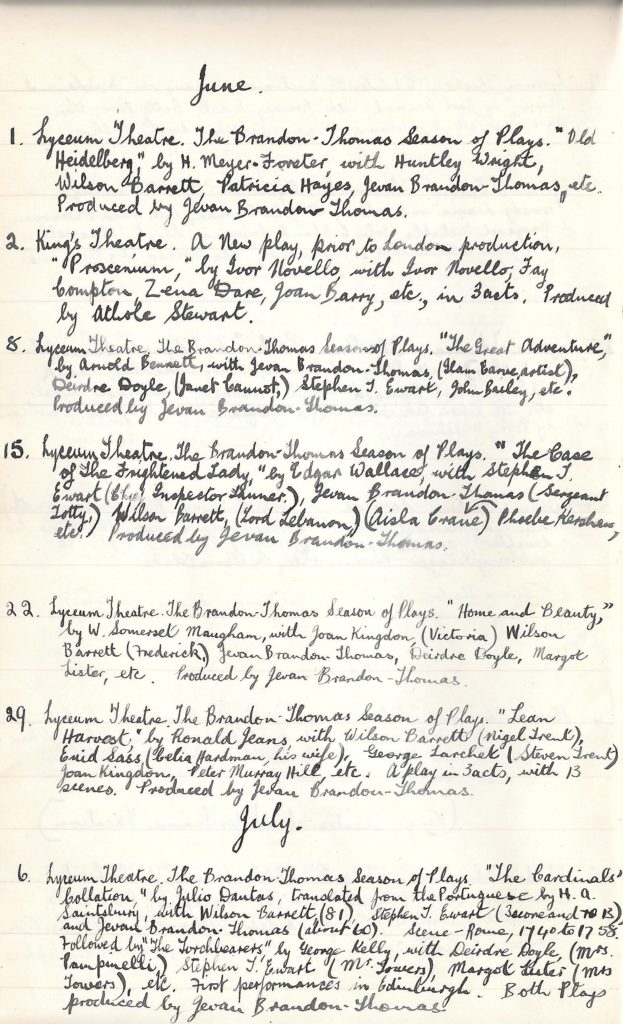 June.
1. Lyceum Theatre. The Brandon-Thomas Season of Plays. "Old
Heidelberg," by H. Meyer-Forster, with Huntley Wright,
Wilson Barrett, Patricia Hayes, Jevan Brandon-Thomas, etc.
Produced by Jevan Brandon-Thomas.
2. King's Theatre. A New play, prior to London production,
"Proscenium," by Ivor Novello, with Ivor Novello, Fay
Compton, Zena Dare, Joan Barry, etc., in 3 acts. Produced
by Athole Stewart.
8. Lyceum Theatre. The Brandon-Thomas Season of Plays. "The Great Adventure,"
by Arnold Bennett, with Jevan Brandon-Thomas, (Ilam Carve, artist),
Deirdre Doyle, (Janet Cannot,) Stephen T. Ewart, John Bailey, etc.
Produced by Jevan Brandon-Thomas.
15. Lyceum Theatre. The Brandon-Thomas Season of Plays. "The Case
of The Frightened Lady," by Edgar Wallace, with Stephen T.
Ewart (Chief Inspector Tanner,), Jevan Brandon-Thomas (Sergeant
Totty,) Wilson Barrett, (Lord Lebanon,) (Aisla Crane) Phoebe Kershaw,
etc. Produced by Jevan Brandon-Thomas.
22. Lyceum Theatre. The Brandon-Thomas Season of Plays. "Home and Beauty,"
by W. Somerset Maugham, with Joan Kingdon, (Victoria) Wilson
Barrett (Frederick,) Jevan Brandon-Thomas, Deirdre Doyle, Margot
Lister, etc. Produced by Jevan Brandon-Thomas.
29. Lyceum Theatre. The Brandon-Thomas Season of Plays. "Lean
Harvest," by Ronald Jeans, with Wilson Barrett (Nigel Trent),
Enid Sass, (Celia Hardman, his wife), George Larchet (Steven Trent)
Joan Kingdon, Peter Murray Hill, etc. A play in 3 acts, with 13
scenes. Produced by Jevan Brandon-Thomas.
July.
6. Lyceum Theatre. The Brandon-Thomas Season of Plays. "The Cardinals'
Collation," by Julio Dantas, translated from the Portuguese by H. A.
Saintsbury, with Wilson Barrett (81), Stephen T. Ewart (Score and
and Jevan Brandon-Thomas (about 60). Scene - Rome, 1740 to 1758.
Followed by "The Torchbearers," by George Kelly, with Deirdre Doyle, (Mrs.
Pampinelli,) Stephen T. Ewart (Mr. Towers), Margot Lister (Mrs
Towers), etc. First performances in Edinburgh. Both Plays
produced by Jevan Brandon-Thomas